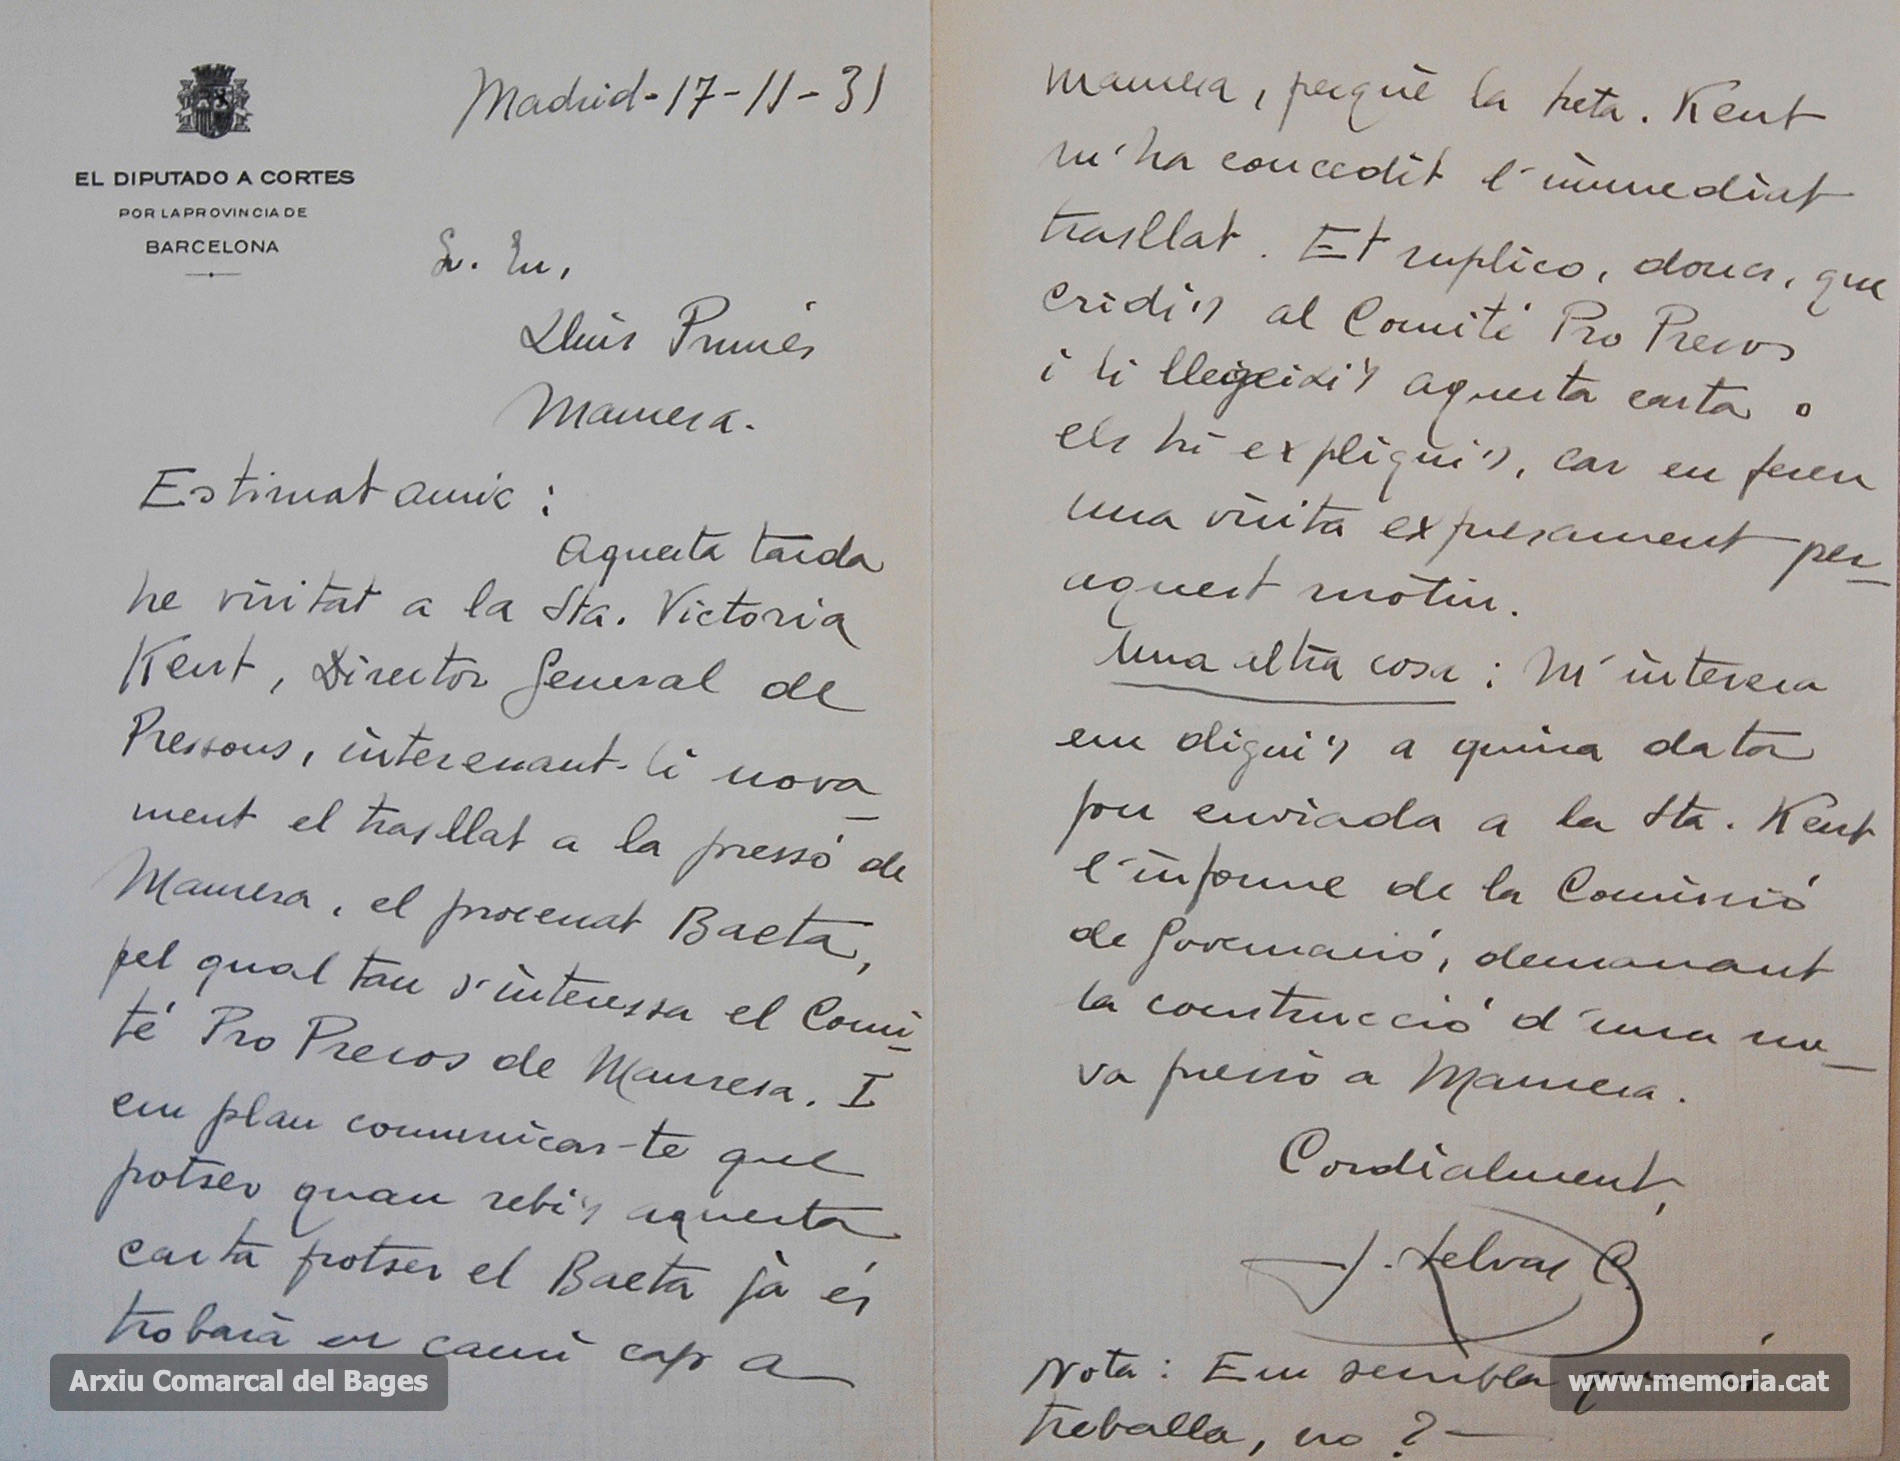 EL DIPUTADO A CORTES
POR LA PROVINCIA DE
BARCELONA
Madrid-17-11-31
Sr. En,
Lluís Prunés
Manresa.
Estimat amic:
Aquesta tarda
he visitat a la Sta. Victoria
Kent, Director General de
Pressons, interesant-li nova-
ment el trasllat a la pressó de
Manresa, el procesat Baeta,
pel qual tan s'interessa el Comi-
té Pro Presos de Manresa. I
em plau comunicar-te que
potser quan rebis aquesta
carta potser el Baeta jà és
trobarà en camí cap a
Manresa, perquè la Srta. Kent
m'ha concedit l'immediat
trasllat. Et suplico, doncs, que
cridis al Comité Pro Presos
i li llegeixis aquesta carta o
els hi expliquis, car em feren
una visita expresament per
aquest motiu.
Una altra cosa: M'interesa
em diguis a quina data
fou enviada a la Sta. Kent
l'informe de la Comissió
de Governació, demanant
la construcció d'una no-
va pressó a Manresa.
Cordialment,
J. Selvas C.
Nota: Em sembla que
treballa, no?
Arxiu Comarcal del Bages
www.memoria.cat